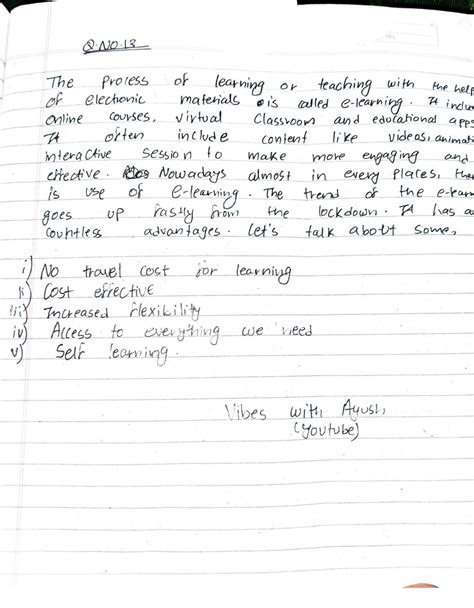 Q.NO.13
The process of learning or teaching with the help
of electronic materials is called e-learning. It inclu
online courses, virtual classroom and educational apps
It often include content like videos, animati
interactive session to make more engaging and
effective. Nowadays almost in every places, the
is use of e-learning. The trend of the e-learn
goes up fastly from the lockdown. It has a
countless advantages. Let's talk about some,
i) No travel cost for learning
ii) Cost effective
iii) Increased flexibility
iv) Access to everything we need
v) Self learning.
Vibes with Ayush,
(Youtube)